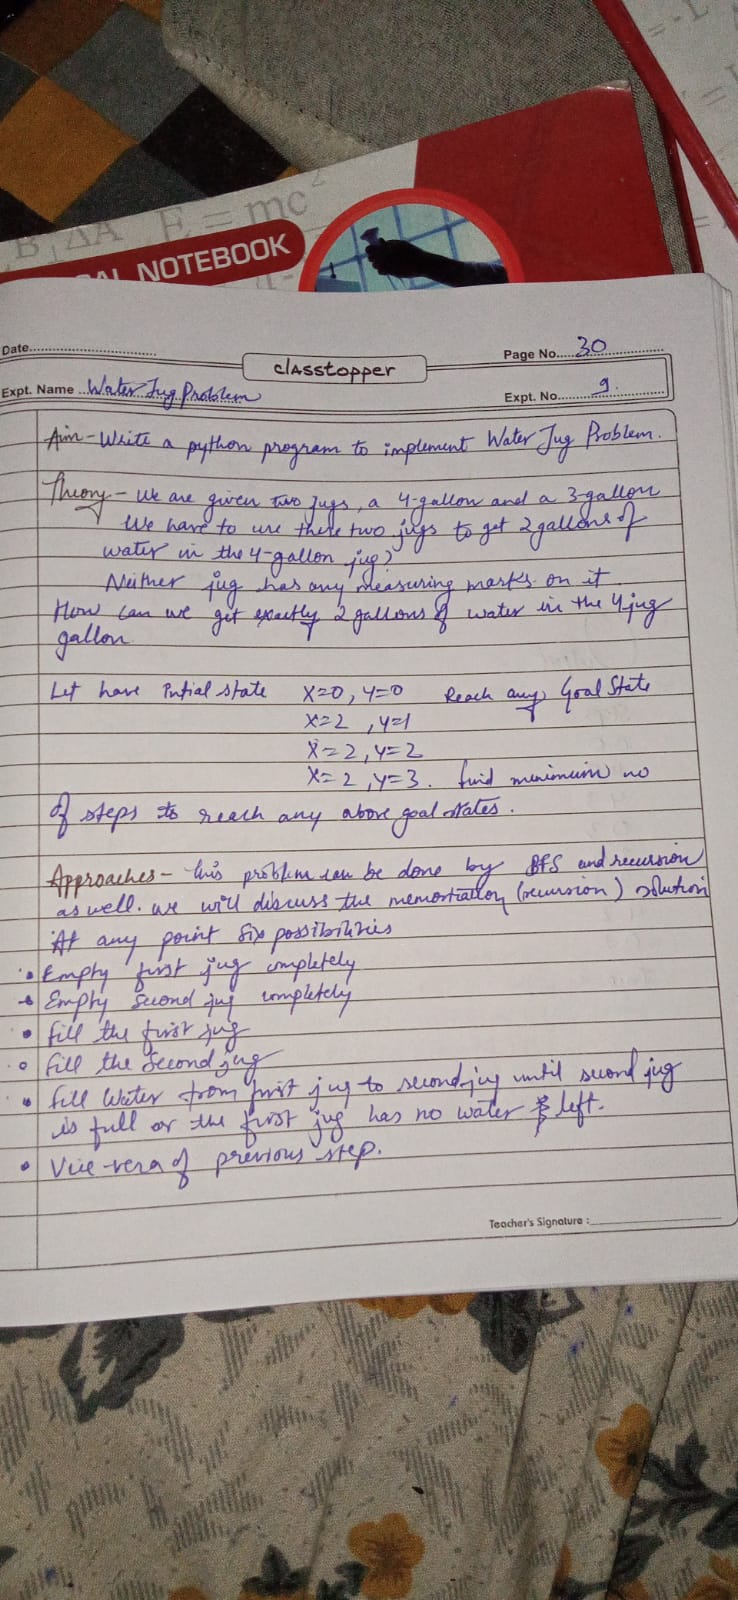 B ΔA E = mc²
AL NOTEBOOK
Date
Page No. 30
classtopper
Expt. Name Water Jug Problem
Expt. No. 9.
Aim - Write a python program to implement Water Jug Problem.
Theory - We are given two jugs, a 4-gallon and a 3-gallon
We have to use these two jugs to get 2 gallons of
water in the 4-gallon jug?
Neither jug has any measuring marks on it.
How can we get exactly 2 gallons of water in the 4 jug
gallon.
Let have Intial state X=0, Y=0 Reach any Goal State
X=2, Y=1
X=2, Y=2
X=2, Y=3. find minimum no
of steps to reach any above goal states.
Approaches - this problem can be done by BFS and recursion
as well. we will discuss the (recursion) solution
At any point Six possibilities
• Empty first jug completely
• Empty second jug completely
• fill the first jug
• fill the second jug
• fill Water from first jug to second jug until second jug
is full or the first jug has no water left.
• Vice-versa of previous step.
Teacher's Signature :